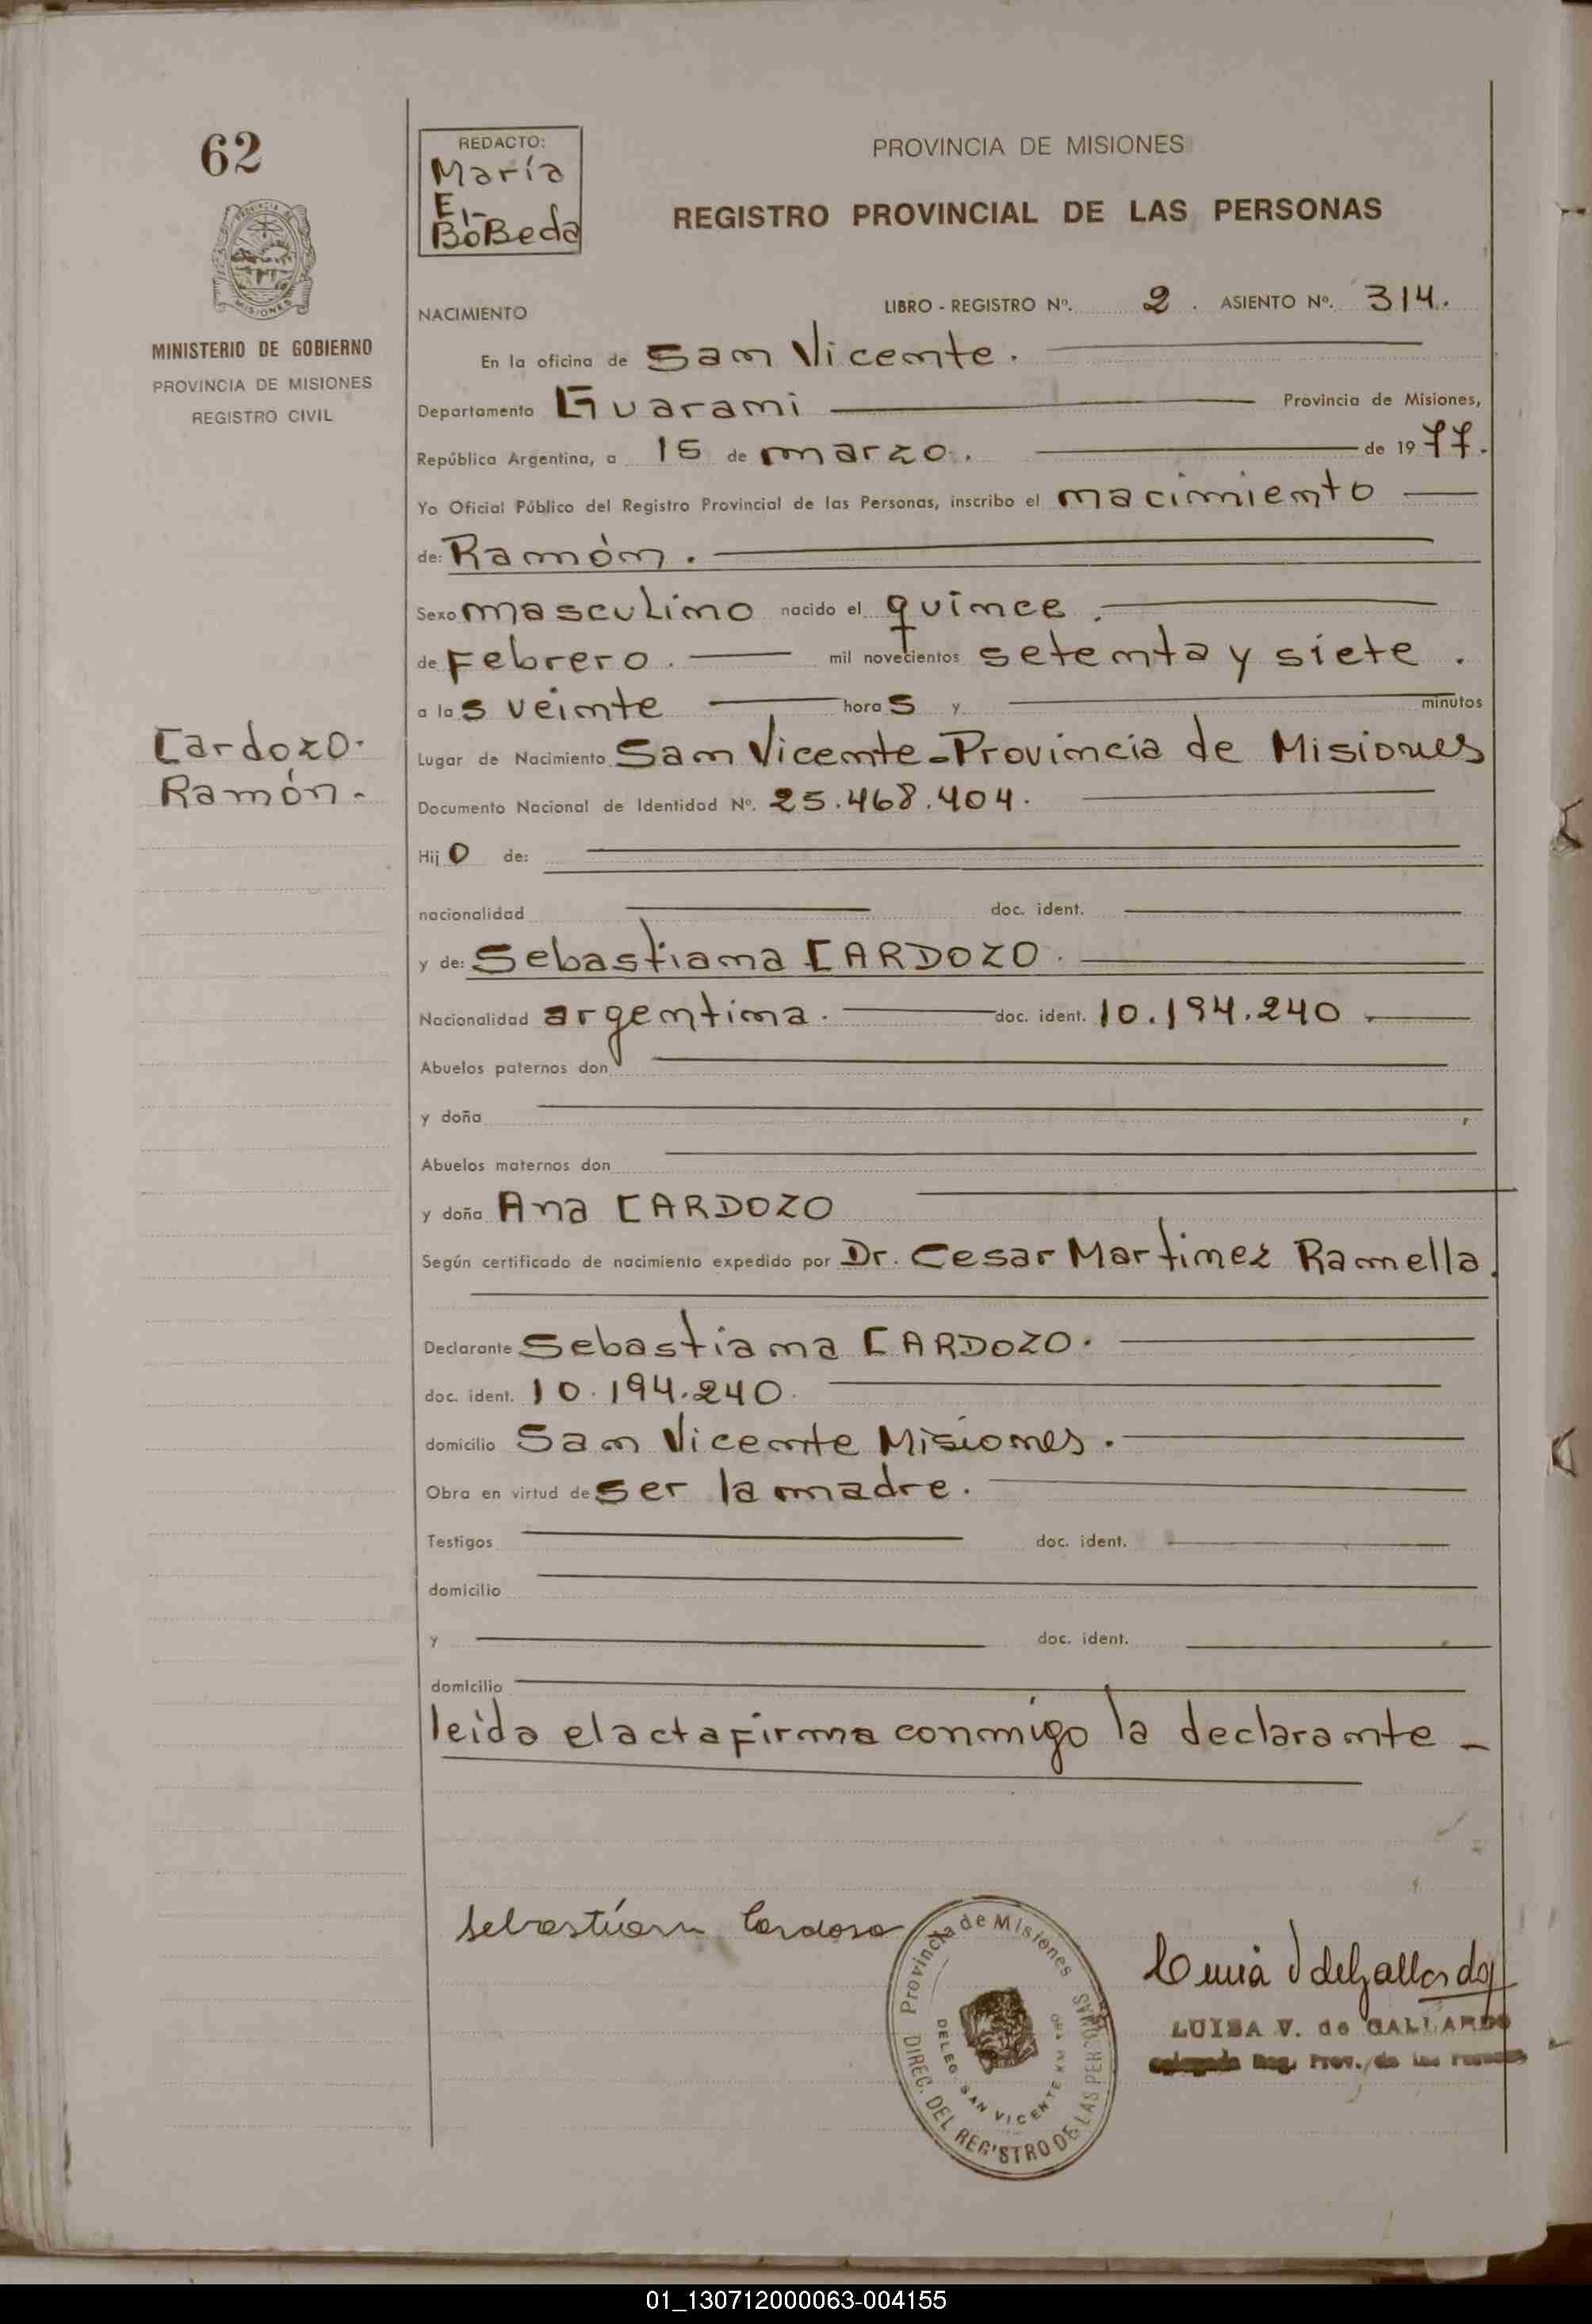 62
REDACTO:
María
E.
BoBeda
PROVINCIA DE MISIONES
REGISTRO PROVINCIAL DE LAS PERSONAS
MINISTERIO DE GOBIERNO
PROVINCIA DE MISIONES
REGISTRO CIVIL
NACIMIENTO LIBRO - REGISTRO Nº. 2. ASIENTO Nº. 314.
En la oficina de San Vicente.
Departamento Guarani Provincia de Misiones,
República Argentina, a 15 de marzo. de 1977.
Yo Oficial Público del Registro Provincial de las Personas, inscribo el nacimiento
de: Ramón.
Sexo masculino nacido el quince.
de Febrero. mil novecientos setenta y siete.
a las veinte horas y minutos
Cardozo.
Ramón.
Lugar de Nacimiento San Vicente-Provincia de Misiones
Documento Nacional de Identidad Nº. 25.468.404.
Hijo de:
nacionalidad doc. ident.
y de: Sebastiana CARDOZO.
Nacionalidad argentina. doc. ident. 10.194.240.
Abuelos paternos don
y doña
Abuelos maternos don
y doña Ana CARDOZO
Según certificado de nacimiento expedido por Dr. Cesar Martinez Ramella.
Declarante Sebastiana CARDOZO.
doc. ident. 10.194.240.
domicilio San Vicente Misiones.
Obra en virtud de ser la madre.
Testigos doc. ident.
domicilio
y doc. ident.
domicilio
leida el acta firma conmigo la declarante -
Sebastiana Cardoso
Provincia de Misiones
DIREC. DEL REGISTRO DE LAS PERSONAS
DELEG. SAN VICENTE
LUISA V. de GALLARDO
Reg. Prov. de las Personas
01_130712000063-004155